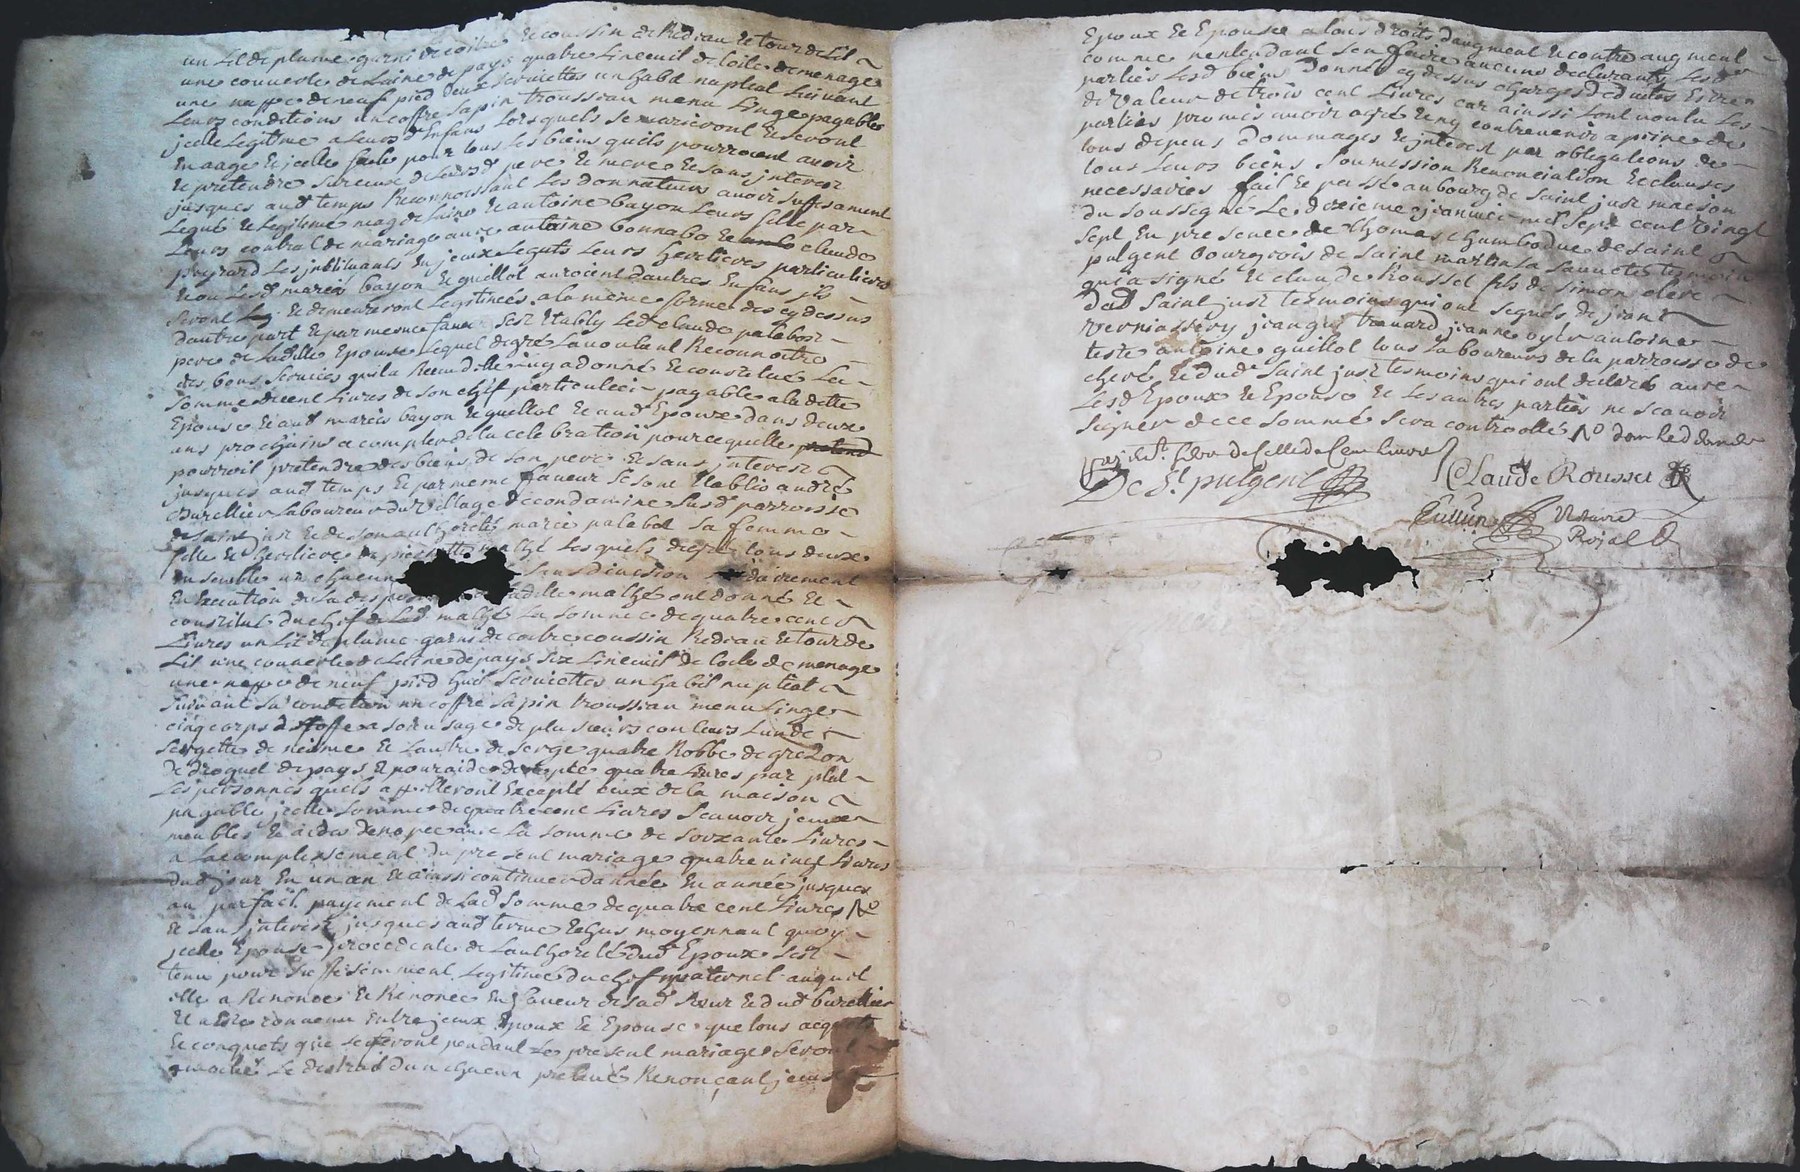 un lit de plume garni de coitre et coussin et Rideau et tour de Lit
une couverte de Laine de pays quatre Linceuil de toile de menage
une nappe de neuf pied deux serviettes un habit nuptial suivant
Leurs conditions un coffre sapin troussiau menu Linge payables
jcelle Legitime a Leurs d. Enfans Lors quils se marieront et seront
En aage et jcelle faite pour tous Les biens quils pourroient avoir
et pretendre sur eux de leursd. pere et mere et sans interest
jusques aud. temps Reconnoissant Les donnateurs avoir suffisament
Legué et Legitimé magdelaine et antoine bayon Leurs fille par
Leurs contrat de mariage avec antoine bonnabo et claude
peyrard Les jnstituants En jceux Leguts Leurs heritiers particuliers
et ou Lesd. mariés bayon et guillot auroient d'autres Enfans jls
seront et demeureront Legitimés a la même forme des cy dessus
dautre part et par mesme faveur sest Etably Led. claude palabost
pere de Ladite Epouse Lequel de gré La voulant Reconnoitre
des bons services quil a Receu delle luy a donné et constitué La
somme de cent Livres de son chef particulier payable a la dette
Epouse et aud. mariés bayon et guillot et aud. Epoux dans deux
ans prochains a compter de la celebration pour ce quelle pretend
pourroit pretendre des biens de son pere et sans interest
jusques aud. temps et par meme faveur se sont Etablis andré
Burellier Laboureur du village decondamine susd. parroisse
de saint just et de son authorité marie palabot sa femme
fille et heritiere de pierrette mathé Lesquels de gré tous deux
Ensemble un chacun sans division solidairement
En Execution de la des ladite mathé ont donné et
constitué du chef de Lad. mathé La somme de quatre cent
Livres un Lit de plume garni de coitre coussin Rideau et tour de
Lit une couverte de Laine de pays six Linceuil de toile de menage
une nappe de neuf pied huit serviettes un habit nuptial
suivant sa condition un coffre sapin troussiau menu Linge
cinq corps d'Etoffe a son usage de plusieurs couleurs Lun de
sergette de nisme et Lautre de serge quatre Robbe de grezon
de droguet de pays et pour aide de nopce quatre Livres par plat
Les personnes quels appelleront Excepté ceux de la maison
payable jcelle somme de quatre cent Livres scavoir jceux
meubles et aides de nopce avec La somme de soixante Livres
a Laccomplissement du present mariage quatre vingt Livres
dud. jour En un an et ainssi continuer d'année En année jusques
au parfait payement de Lad. somme de quatre cent Livres No
et sans interest jusques aud. terme Echus moyennant quoy
jcelle Epouse procedente de Lauthorité dud. Epoux sest
tenu pour suffisemment Legitimée du chef maternel auquel
elle a Renoncé et Renonce En faveur de sad. sœur et dud. burellier
Et a Esté convenu Entre jceux Epoux et Epouse que tous acquets
et conquets que se feront pendant Le present mariage seront
moitié Le destrait dun chacun prelevé Renonçant jceux
Epoux et Epouse a tous droits daugment et contre augment
comme nentendant sen faire aucuns declarants Lesd.
parties Lesd. biens donnés cy dessus charges deduites Estre
de valeur de trois cent Livres car ainssi Lont voulu Les
parties promis avoir agré et ny contrevenir a peine de
tous depens dommages et interest par obligations de
tous Leurs biens soumission Renonciation et clauses
necessaires fait et passé au bourg de saint just maison
du soussigné Le dixieme jeanvier mil sept cent vingt
sept En presence de thomas chambodue de saint
pulgent bourgeois de saint martin La sauveté temoin
qui a signé et claude Rousset fils de simon clerc
dud. saint just tesmoins qui ont segnés de jeant
verniassery jean guy travard jeanne oylr antoine
teste antoine guillot tous Laboureurs de la parroisse de
cheré et dud. saint just tesmoins qui ont declaré avec
Lesd. Epoux et Epouse et Les autres parties ne scavoir
signer de ce sommé sera controollé No
De St pulgent
Claude Rousset
Notaire
Royal